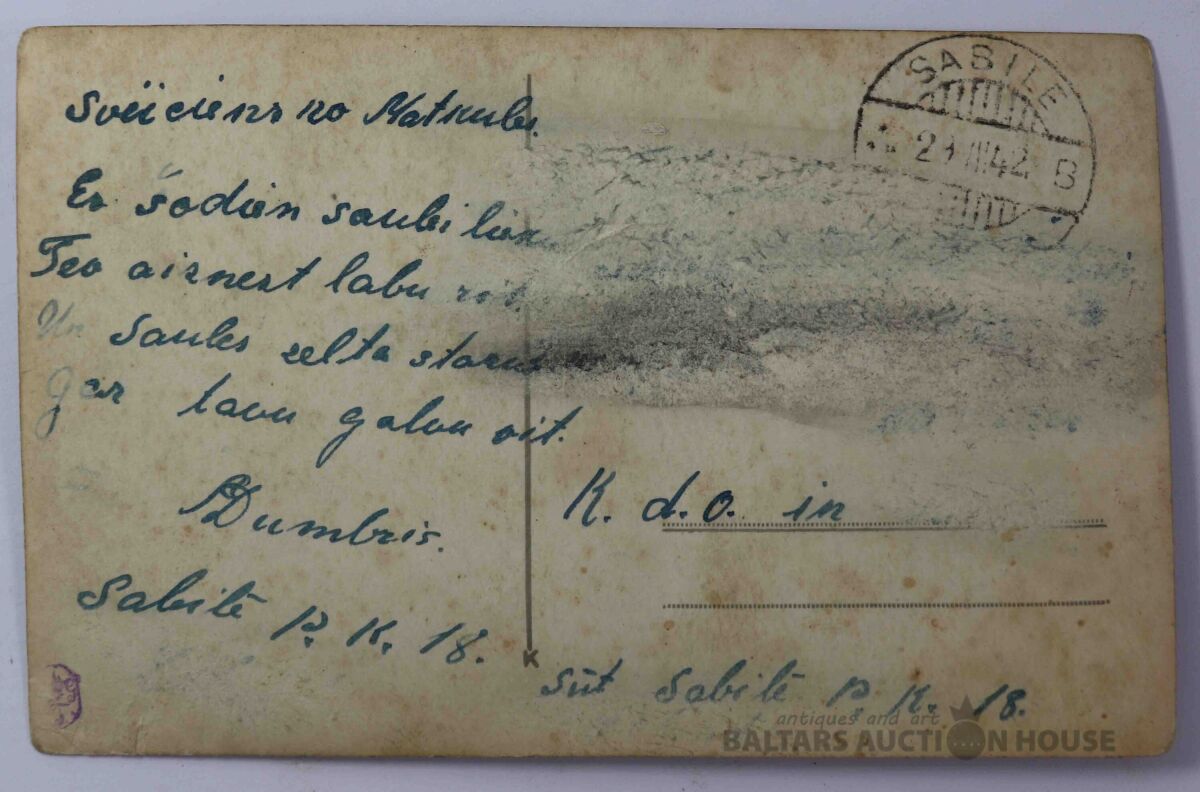 Sveiciens no Matkules.
Es šodien saulei lieku
Tev aiznest labu rīt.
Un Saules zelta starus
Gar tavu galvu vīt.
Dumbris.
Sabilē P. K. 18.
SABILE
2 III 42 B
K. d. o. in
K
Sūt Sabilē P. K. 18.
antiques and art
BALTARS AUCTION HOUSE